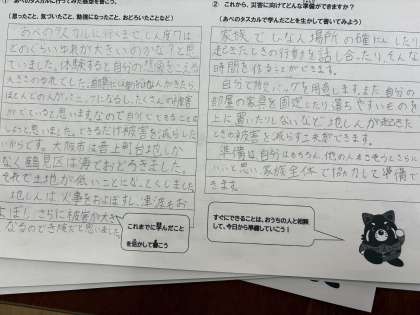 ① あべのタスカルに行ってみた感想を書こう。
(思ったこと、気づいたこと、勉強になったこと、おどろいたことなど)
あべのタスカルに行くまで、しん度7は
どのくらいゆれが大きいのかな?と思
っていました。体験すると自分の想像をこえる
大きさのゆれでした。
ほとんどの人がパニックになるし、たくさんの被害
がでていると思います。なので
しいと思いました。できるだけ被害を減らした
いからです。大阪市は上町台地しか
なく鶴見区は海でおどろきました。
それで土地が低いことになっとくしました。
地しんは人事をおよぼすし、津波もお
よぼし、さらに被害が大き
なるので危険だと思いました。
これまでに学んだこと
を活かして書こう
② これから、災害に向けてどんな準備ができますか?
(あべのタスカルで学んだことを生かして書いてみよう)
家族でひなん場所の確にんしたり
起きたときの行動を話し合ったり、そんな
時間を作ることができます。
自分で防災バッグを用意します。また自分の
部屋の家具を固定したり落ちやすいものを
上に置いたりしないなど地しんが起きた
ときの被害を減らす工夫ができます。
準備は自分はもちろん、他の人
いいと思い、家族全体で協力して準備で
きます。
すぐにできることは、おうちの人と相談
して、今日から準備していこう!